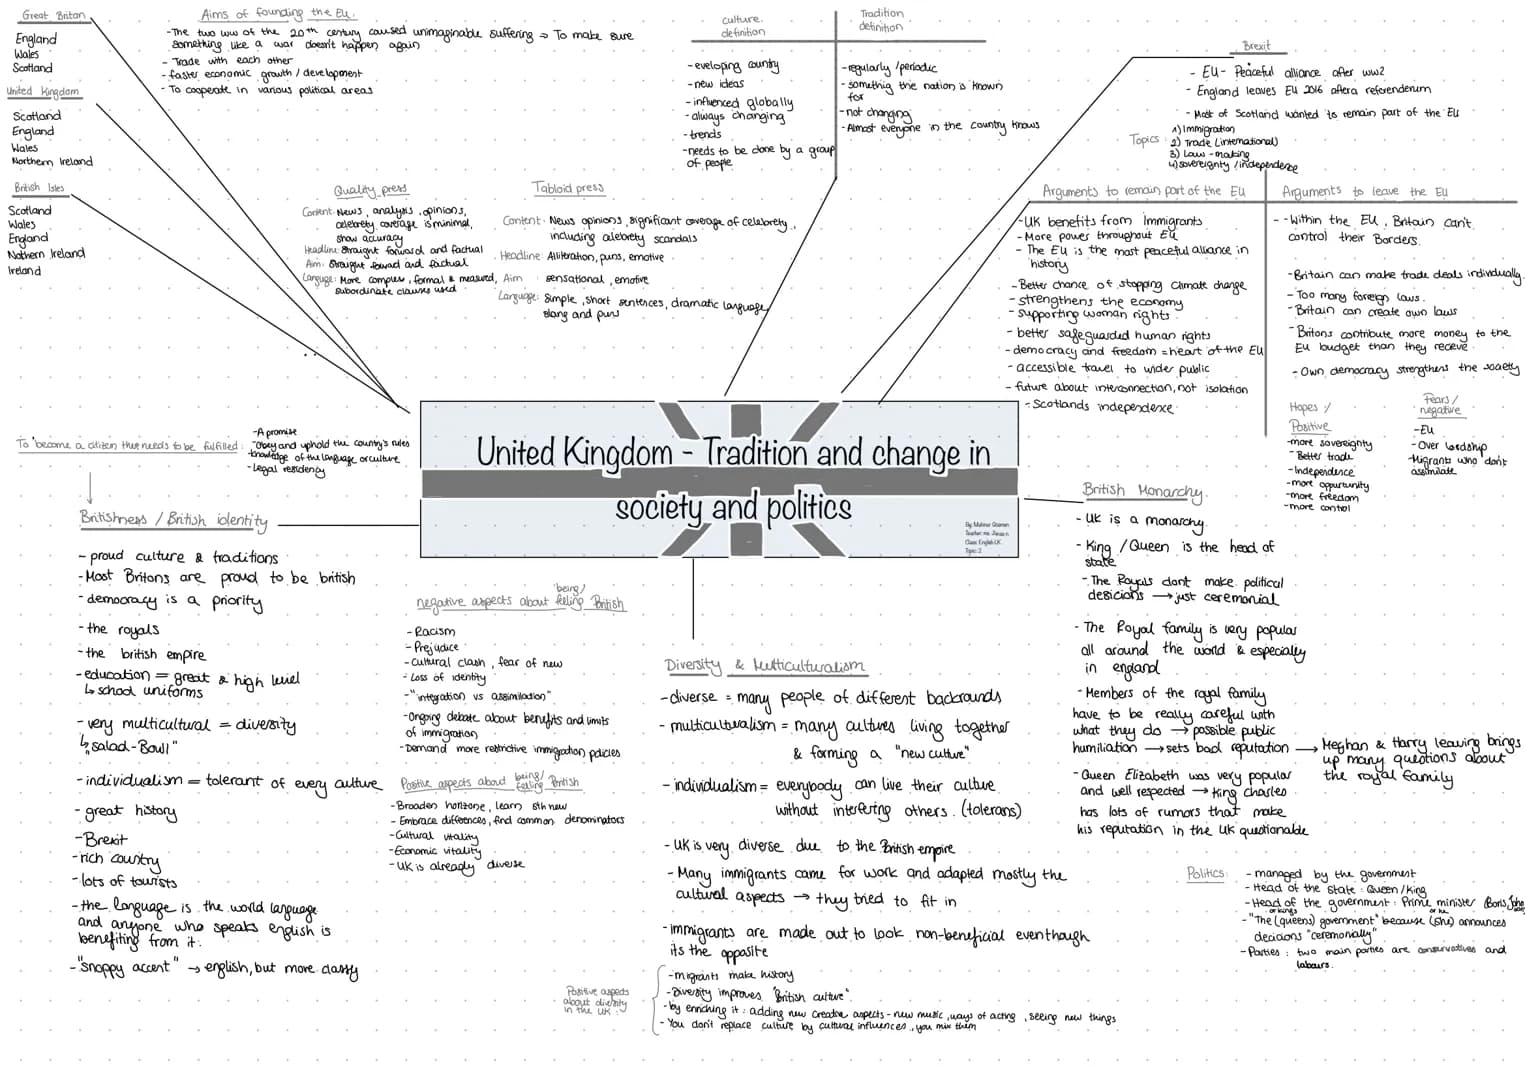 Great Britan
England
Wales
Scotland
United Kingdom
Scotland
England
Wales
Northern Ireland
British Isles
Scotland
Wales
England
Nothern Ireland
Ireland
Aims of founding the EU.
-The two ww of the 20th century caused unimaginable suffering → To make sure
something like a war doesn't happen again
- Trade with each other
- faster economic growth / development
- To cooperate in various political areas
Quality press
Content: News, analysis, opinions,
celebrety coverage is minimal,
show accuracy
Headline: straight forward and factual
Aim: straight foward and factual
Language: More complex, formal & measured,
subordinate clauses used
Tabloid press
Content: News opinions, significant coverage of celebrety,
including celebrety scandals
Headline: Alliteration, puns, emotive
Aim: sensational, emotive
Language: Simple, short sentences, dramatic language,
slang and puns
culture
definition
-eveloping country
-new ideas
-influenced globally
-always changing
-trends
-needs to be done by a group
of people
Tradition
definition
-regularly /periodic
-somethig the nation is known
for
-not changing
-Almost everyone in the country knows
Brexit
- EU- Peaceful alliance after ww2
- England leaves EU 2016 after a referendum
- Most of Scotland wanted to remain part of the EU
Topics:
1) Immigration
2) Trade (international)
3) Law-making
4) sovereignty /independence
Arguments to remain part of the EU
-UK benefits from Immigrants
-More power throughout EU
- The EU is the most peaceful alliance in
history
-Better chance of stopping climate change
-strengthens the economy
-supporting woman rights
- better safeguarded human rights
-democracy and freedom = heart of the EU
-accessible travel to wider public
-future about interconnection, not isolation
-Scotlands independence
Arguments to leave the EU
- -Within the EU, Britain can't
control their Borders.
-Britain can make trade deals individually.
- Too many foreign laws.
-Britain can create own laws
-Britons contribute more money to the
EU budget than they receve
-Own democracy strengthens the society
Hopes /
Positive
-more sovereignty
-Better trade
-Independence
-more opportunity
-more freedom
-more control
Fears /
negative
-EU
-Over lordship
-Migrants who don't
assimilate
United Kingdom - Tradition and change in
society and politics
Topic: 2
To become a citizen these needs to be fulfilled:
-A promise
-Obey and uphold the country's rules
-knowledge of the language or culture
-Legal residency
Britishness / British identity
- proud culture & traditions
-Most Britons are proud to be british
-democracy is a priority
-the royals
-the british empire
-education = great & high level
↳ school uniforms
-very multicultural = diversity
↳ "salad-Bowl"
-individualism = tolerant of every culture
- great history
-Brexit
-rich country
-lots of tourists
-the language is the world language
and anyone who speaks english is
benefiting from it.
-"snoppy accent" → english, but more classy
negative aspects about being/ feeling British
-Racism
-Prejudice
-cultural clash, fear of new
- Loss of identity
-"integration vs assimilation"
-Ongoing debate about benefits and limits
of immigration
-Demand more restrictive immigration policies
Positive aspects about being/ feeling British
-Broaden horizone, learn sth new
- Embrace differences, find common denominators
-Cultural vitality
-Economic vitality
-UK is already diverse
Diversity & Multiculturalism
-diverse = many people of different backrounds
- multiculturalism = many cultures living together
& forming a "new culture"
- individualism = everybody can live their culture
without interfering others. (tolerans)
- UK is very diverse due to the British empire
- Many immigrants came for work and adapted mostly the
cultural aspects → they tried to fit in
-immigrants are made out to look non-beneficial eventhough
its the opposite
Positive aspects
about diversity
in the UK:
-migrants make history
-Diversity improves "British culture"
-by enriching it: adding new creative aspects - new music, ways of acting, seeing new things
-You don't replace culture by cultural influences, you mix them
British Monarchy
- UK is a monarchy
- King /Queen is the head of
state
-The Royals dont make political
desicions → just ceremonial
- The Royal family is very popular
all around the world & especially
in england
-Members of the royal family
have to be really careful with
what they do → possible public
humiliation → sets bad reputation → Meghan & Harry leaving brings
up many questions about
the royal family
-Queen Elizabeth was very popular
and well respected → King charles
has lots of rumors that make
his reputation in the UK questionable
Politics:
- managed by the government
-Head of the state: Queen/King
-Head of the government: Prime minister
-"The (queens) or kings government" because (she) or he announces
decicions "ceremonially"
-Parties: two main parties are conservatives and
labours.